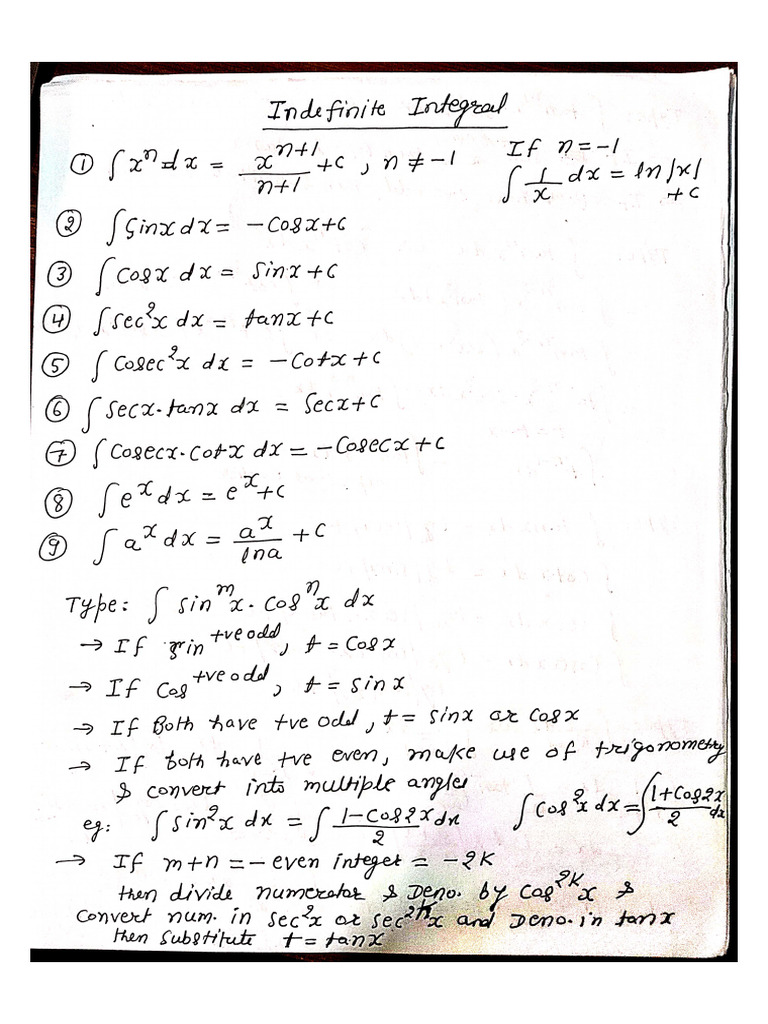 Indefinite Integral
① ∫xⁿ dx = xⁿ⁺¹/(n+1) + c , n ≠ -1   If n = -1
∫ 1/x dx = ln|x| + c
② ∫Sinx dx = -Cosx+c
③ ∫Cosx dx = Sinx+c
④ ∫Sec²x dx = tanx+c
⑤ ∫Cosec²x dx = -Cotx+c
⑥ ∫Secx·tanx dx = Secx+c
⑦ ∫Cosecx·Cotx dx = -Cosecx+c
⑧ ∫eˣdx = eˣ+c
⑨ ∫aˣdx = aˣ/lna + c
Type: ∫ sinᵐx·Cosⁿx dx
→ If sin^+ve odd, t = Cosx
→ If Cos^+ve odd, t = sinx
→ If Both have +ve odd, t = sinx or Cosx
→ If both have +ve even, make use of trigonometry
& convert into multiple angles
eg: ∫sin²x dx = ∫ (1-Cos2x)/2 dx   ∫Cos²x dx = ∫ (1+Cos2x)/2 dx
→ If m+n = -even integer = -2K
then divide numerator & Deno. by Cos^2K x &
Convert num. in sec²x or sec^2K x and Deno. in tanx
then substitute t = tanx